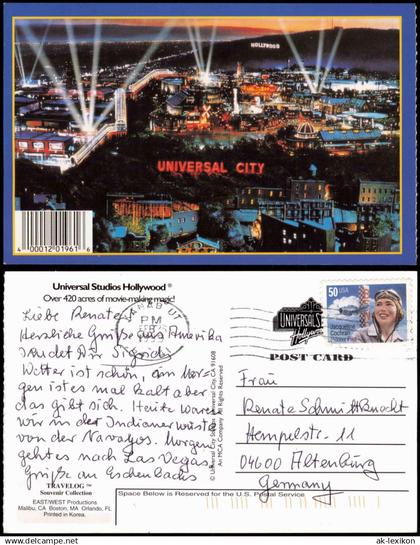 HOLLYWOOD
UNIVERSAL CITY
4 00012 01961 6
Universal Studios Hollywood®
Over 420 acres of movie-making magic!
Liebe Renate
Herzliche Grüße aus Amerika
sendet Dir Sigrid
Wetter ist schön, am Mor-
gen ist es mal kalt aber
das gibt sich. Heute waren
wir in der Indianerwüste
von der Navayos. Morgen
geht es nach Las Vegas,
Grüße an Eschenbachs
TRAVELOG™
Souvenir Collection
EAST/WEST Productions
Malibu, CA Boston, MA Orlando, FL
Printed in Korea.
KANAB UT
PM
© Universal City Studios Universal City, CA 91608
An MCA Company. All Rights Reserved
UNIVERSAL STUDIOS
Hollywood
50 USA
Jacqueline
Cochran
Pioneer Pilot
POST CARD
Frau
Renate Schmidt
Hempelstr. 11
04600 Altenburg
Germany
Space Below is Reserved for the U.S. Postal Service
© ak-lexikon